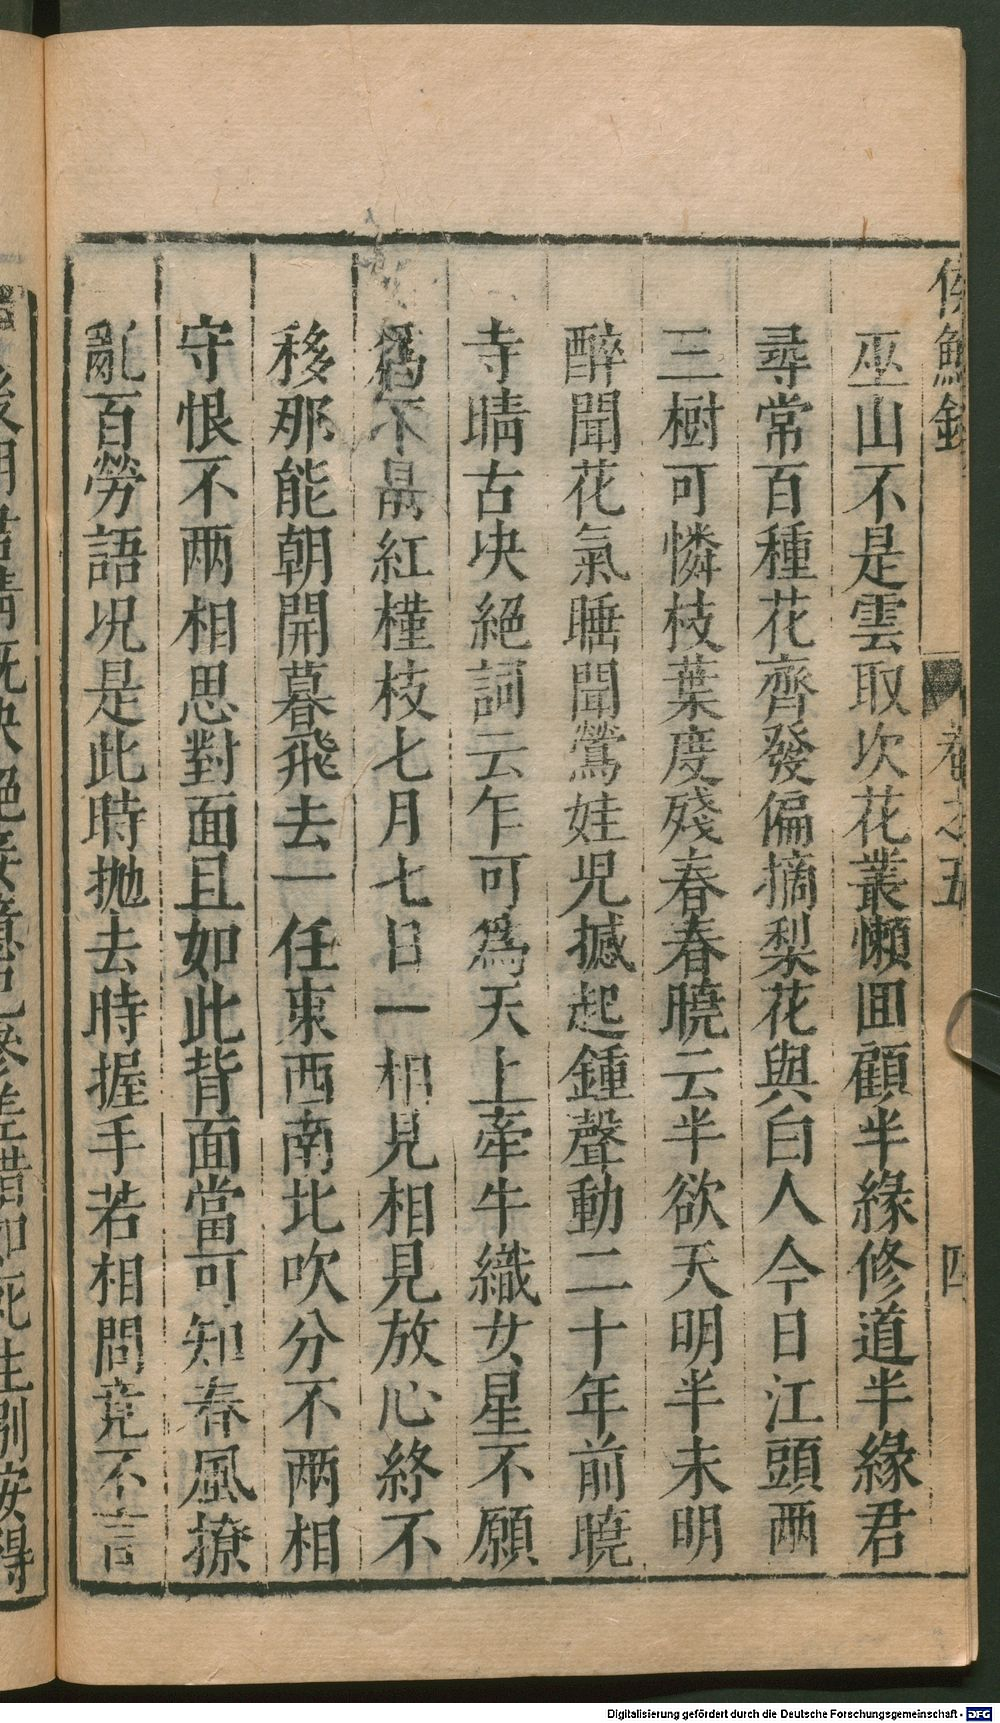 侯鯖錄 卷之五 四
巫山不是雲取次花叢懶回顧半緣修道半緣君
尋常百種花齊發偏摘梨花與白人今日江頭兩
三樹可憐枝葉度殘春春曉云半欲天明半未明
醉聞花氣睡聞鶯娃兒撼起鍾聲動二十年前曉
寺晴古决絕詞云乍可爲天上牽牛織女星不願
爲不晨紅槿枝七月七日一相見相見放心終不
移那能朝開暮飛去一任東西南北吹分不兩相
守恨不兩相思對面且如此背面當可知春風撩
亂百勞語况是此時拋去時握手若相問竟不言
Digitalisierung gefördert durch die Deutsche Forschungsgemeinschaft - DFG